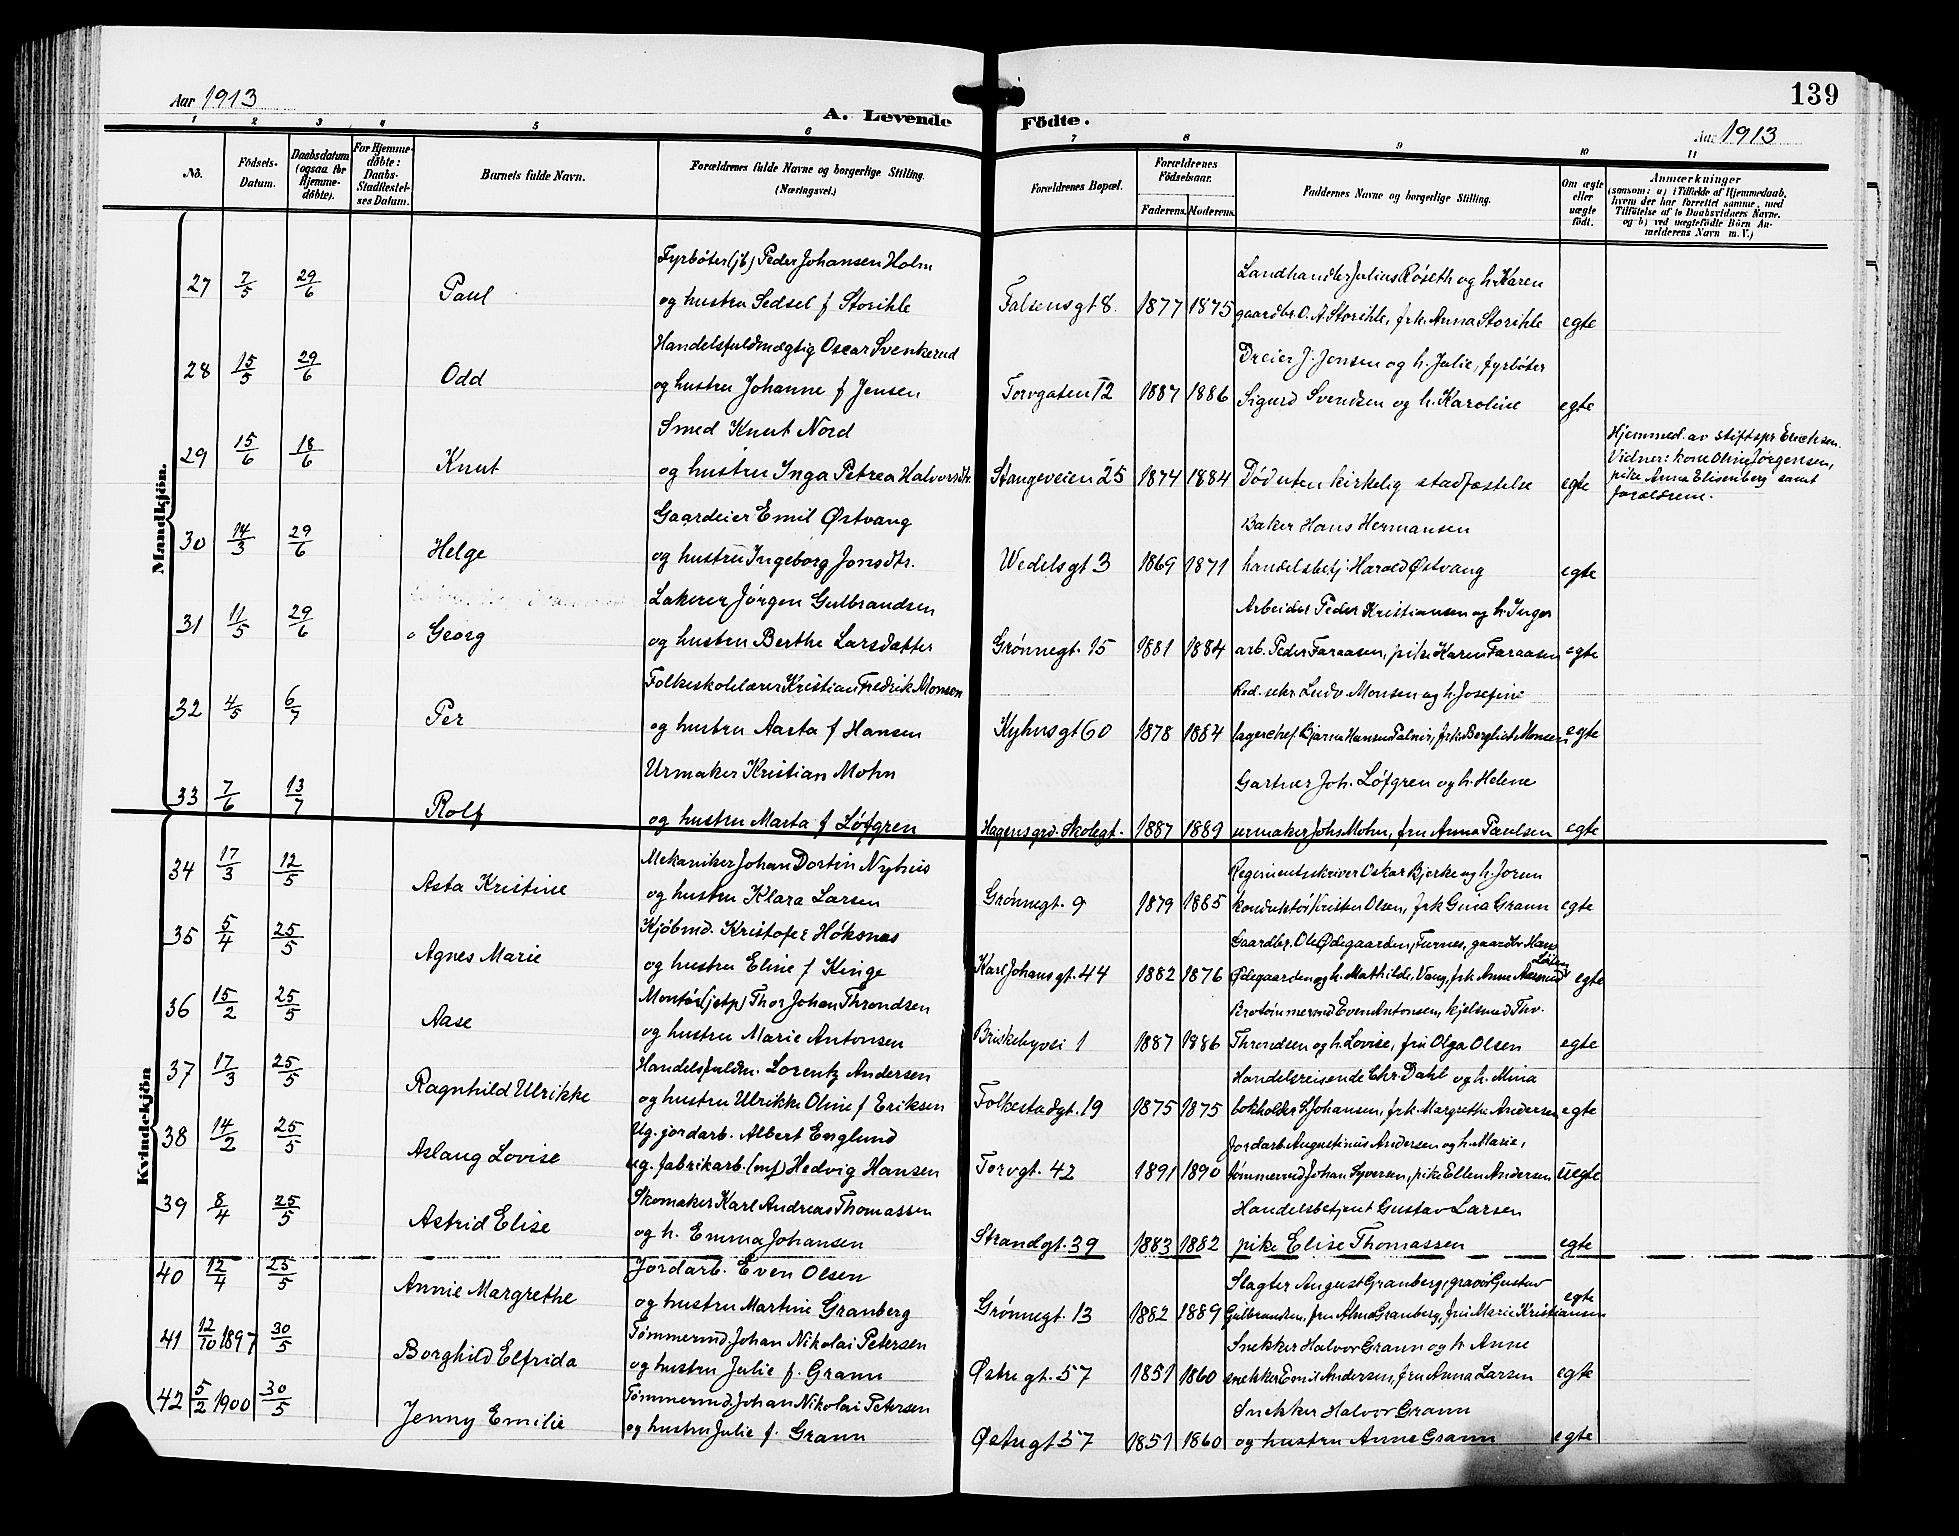 Aar 1913
A. Levende Födte.
139
Aar 1913
1 2 3 4 5 6 7 8 9 10 11
Nö.
Födsels-Datum.
Daabsdatum (ogsaa for Hjemme-döbte).
For Hjemme-döbte: Daabs-Stadfæstel-ses Datum.
Barnets fulde Navn.
Forældrenes fulde Navne og borgerlige Stilling. (Næringsvei.)
Forældrenes Bopæl.
Forældrenes Födselsaar.
Faderens. Moderens.
Faddernes Navne og borgerlige Stilling.
Om ægte eller uægte födt.
Anmærkninger
(saasom: a) i Tilfælde af Hjemmedaab,
hvem der har forrettet samme, med
Tilföielse af to Daabsvidners Navne.
og b) ved uægtefödte Börn An-
melderens Navn m. V.)
Mandkjön.
Fyrbøter (jb) Peder Johansen Holm Landhandler Julius Røseth og h. Karen
27 7/5 29/6 Paul og hustru Sedsel f Storihle Falsensgt 8. 1877 1875 gaardbr. O. A. Storihle, frk. Anna Storihle egte
Handelsfuldmægtig Oscar Svenkerud Dreier J. Jensen og h. Julie, fyrbøter
28 15/5 29/6 Odd og hustru Johanne f Jensen Torvgaten 12 1887 1886 Sigurd Svendsen og h. Karoline egte
Smed Knut Nord Hjemmed. av stiftspr Erichsen.
29 15/6 18/6 Knut og hustru Inga Petrea Halvorsdtr. Stangeveien 25 1874 1884 Død uten kirkelig stadfæstelse egte Vidner: kone Oline Jørgensen,
pike Anna Elisenberg samt
forældrene.
Gaardeier Emil Østvang Baker Hans Hermansen
30 14/3 29/6 Helge og hustru Ingeborg Jonsdtr. Wedelsgt 3 1869 1871 handelsbetj. Harald Østvang egte
Lakerer Jørgen Gulbrandsen Arbeider Peder Kristiansen og h. Inger
31 11/5 29/6 Georg og hustru Berthe Larsdatter Grønnegt. 15 1881 1884 arb. Peder Faraasen, pike Karen Faraasen egte
Folkeskolelærer Kristian Fredrik Monsen Red. sekr. Ludv Monsen og h. Josefine
32 4/5 6/7 Per og hustru Aasta f Hansen Kyhnsgt 60 1878 1884 lagerchef Bjarne Hansen Falnir, frk. Bergliot Monsen egte
Urmaker Kristian Mohn Gartner Joh. Løfgren og h. Helene
33 7/6 13/7 Rolf og hustru Marta f Løfgren Hagensgrd. Skolegt. 1887 1889 urmaker Johs Mohn, fru Anna Paulsen egte
Kvindekjön
Mekaniker Johan Dortin Nyhus Regimentsskriver Oskar Bjerke og h. Joren
34 17/3 12/5 Asta Kristine og hustru Klara Larsen Grønnegt. 9 1879 1885 konduktør Krister Olsen, frk Gina Grann egte
Kjøbmd. Kristofer Høksnes Gaardbr. Ole Ødegaarden, Furnes, gaardbr Hans
35 5/4 25/5 Agnes Marie og hustru Eline f Kinge Karl Johans gt. 44 1882 1876 Ødegaarden og h. Mathilde, Vang, frk Anne Aasmund Løiten egte
Montør (jetp) Thor Johan Throndsen Brotømmermd Even Antonsen, kjelsmed Thv.
36 15/2 25/5 Aase og hustru Marie Antonsen Briskebyvei 1 1887 1886 Throndsen og h. Lovise, fru Olga Olsen egte
Handelsfuldm. Lorentz Andersen Handelsreisende Chr. Dahl og h. Mina
37 17/3 25/5 Ragnhild Ulrikke og hustru Ulrikke Oline f Eriksen Folkestadgt. 19 1875 1875 bokholder S. Johansen, frk. Margrethe Andersen egte
Ug. jordarb. Albert Englund Jordarb. Augustinus Andersen og h. Marie,
38 14/2 25/5 Aslaug Lovise ug. fabrikarb. (mf) Hedvig Hansen Torvgt. 42 1891 1890 tømmermd Johan Syversen, pike Ellen Andersen uegte
Skomaker Karl Andreas Thomassen Handelsbetjent Gustav Larsen
39 8/4 25/5 Astrid Elise og h. Emma Johansen Strandgt. 39 1883 1882 pike Elise Thomassen egte
Jordarb. Even Olsen Slagter August Granberg, gravør Gustav
40 12/4 25/5 Annie Margrethe og hustru Martine Granberg Grønnegt. 13 1882 1889 Gulbrandsen, fru Alma Granberg, fru Marie Kristiansen egte
Tømmermd. Johan Nikolai Petersen Snekker Halvor Grann og h Anne
41 12/10 1897 30/5 Borghild Elfrida og hustru Julie f. Grann Østregt. 57 1851 1860 snekker Emil Andersen, fru Anna Larsen egte
Tømmermd. Johan Nikolai Petersen Snekker Halvor Grann
42 5/2 1900 30/5 Jenny Emilie og hustru Julie f. Grann Østregt 57 1851 1860 og hustru Anne Grann egte